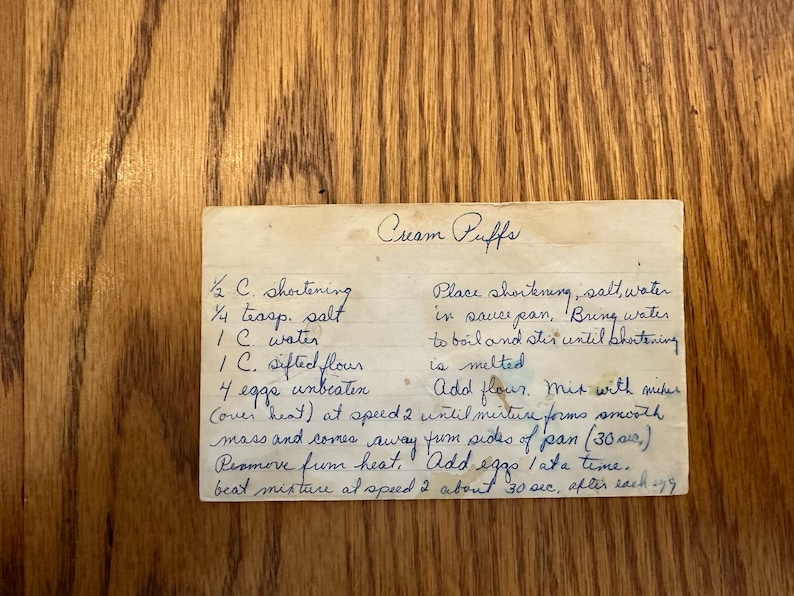 Cream Puffs
½ C. shortening
¼ teasp. salt
1 C. water
1 C. sifted flour
4 eggs unbeaten
Place shortening, salt, water
in sauce pan. Bring water
to boil and stir until shortening
is melted
Add flour. Mix with mixer
(over heat) at speed 2 until mixture forms smooth
mass and comes away from sides of pan (30 sec.)
Remove from heat. Add eggs 1 at a time.
beat mixture at speed 2 about 30 sec. after each egg